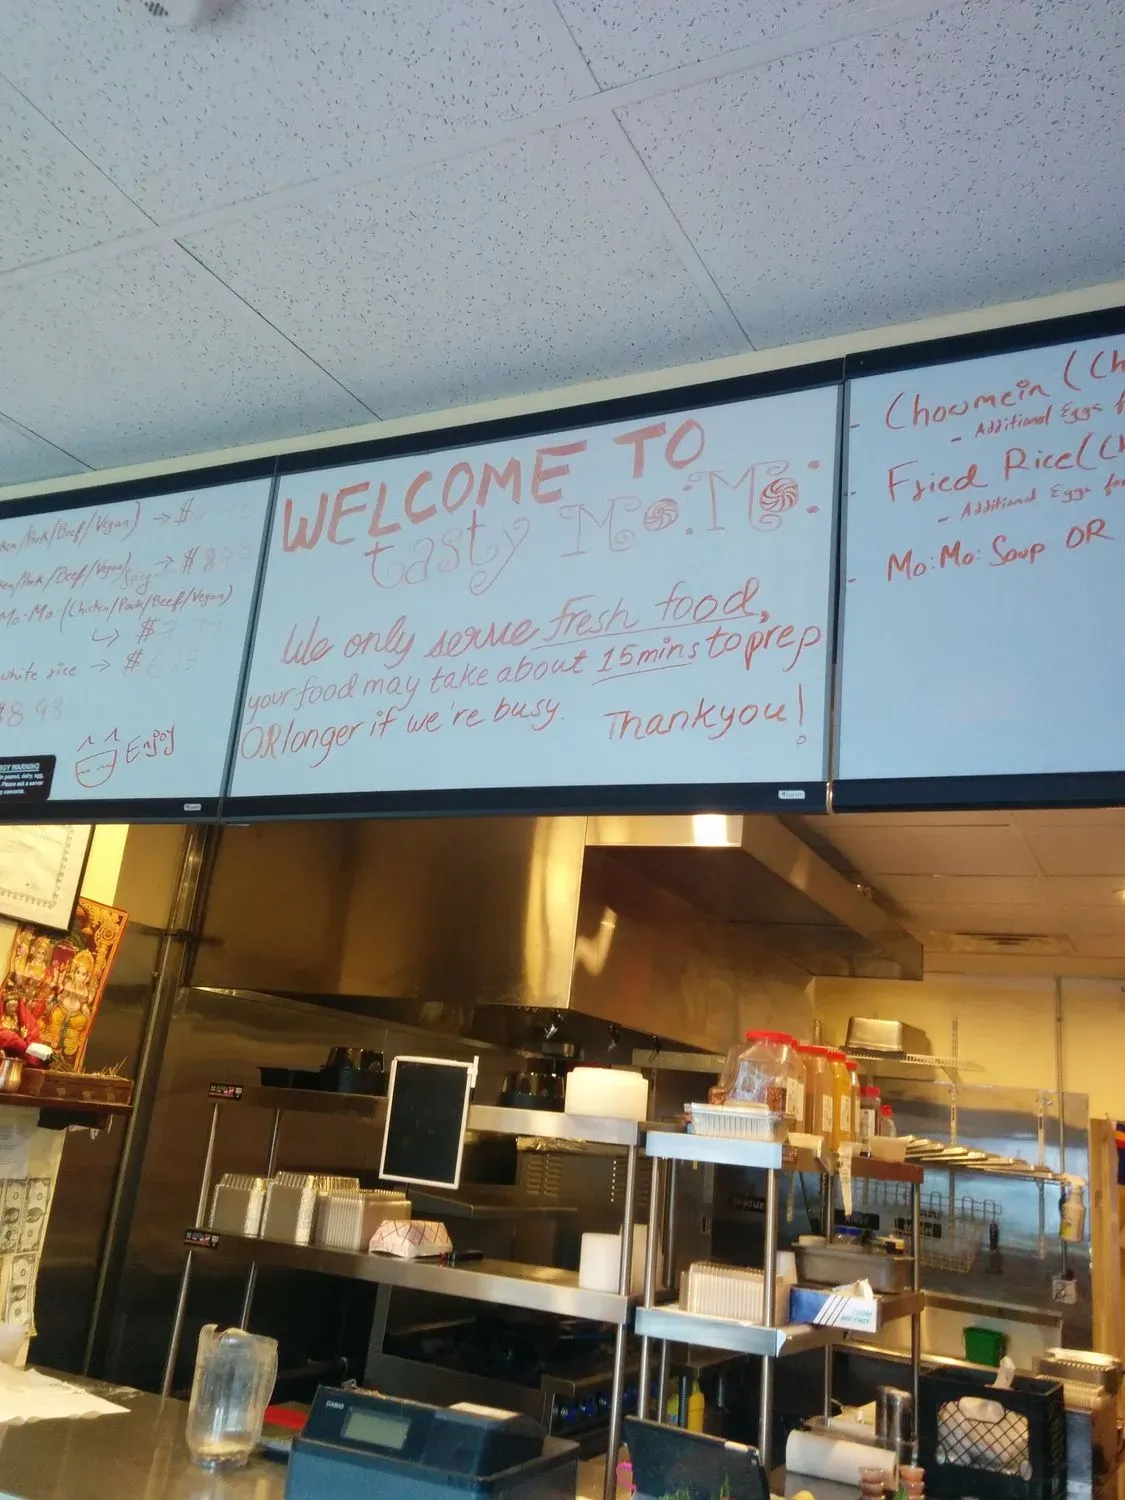 /Pork/Beef/Vegan) → $
/Pork/Beef/Vegan) → $8.4
Mo:Mo:(Chicken/Pork/Beef/Vegan)
↳ $7
white rice → $6.25
$8.48
Enjoy
GY WARNING
WELCOME TO
tasty Mo:Mo:
We only serve fresh food,
your food may take about 15mins to prep
OR longer if we're busy.
Thank you!
- Chowmein (Ch
- Additional Eggs f
- Fried Rice (Ch
- Additional Eggs for
- Mo:Mo: Soup OR
CASIO